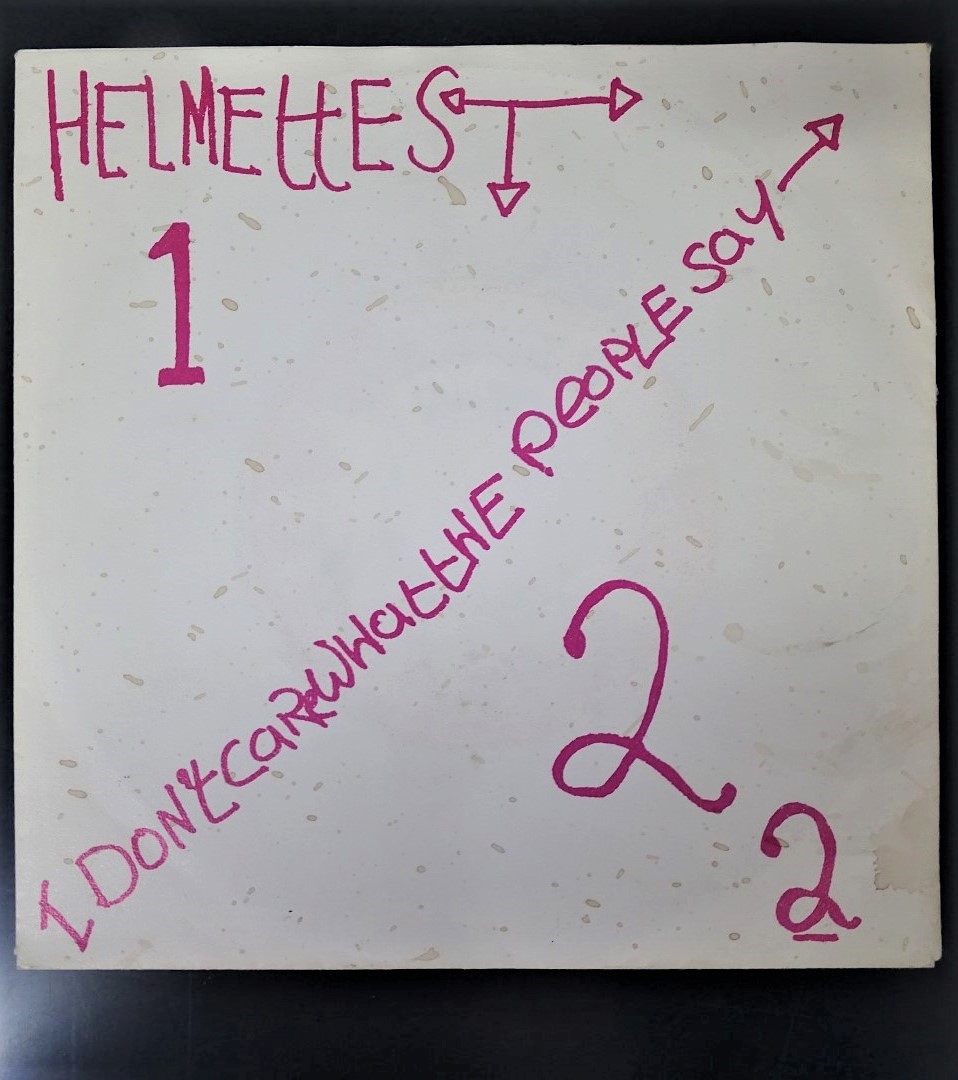 HELMEttES
1
I DON't CaRE WHat tHE PEOPLE Say
2
2